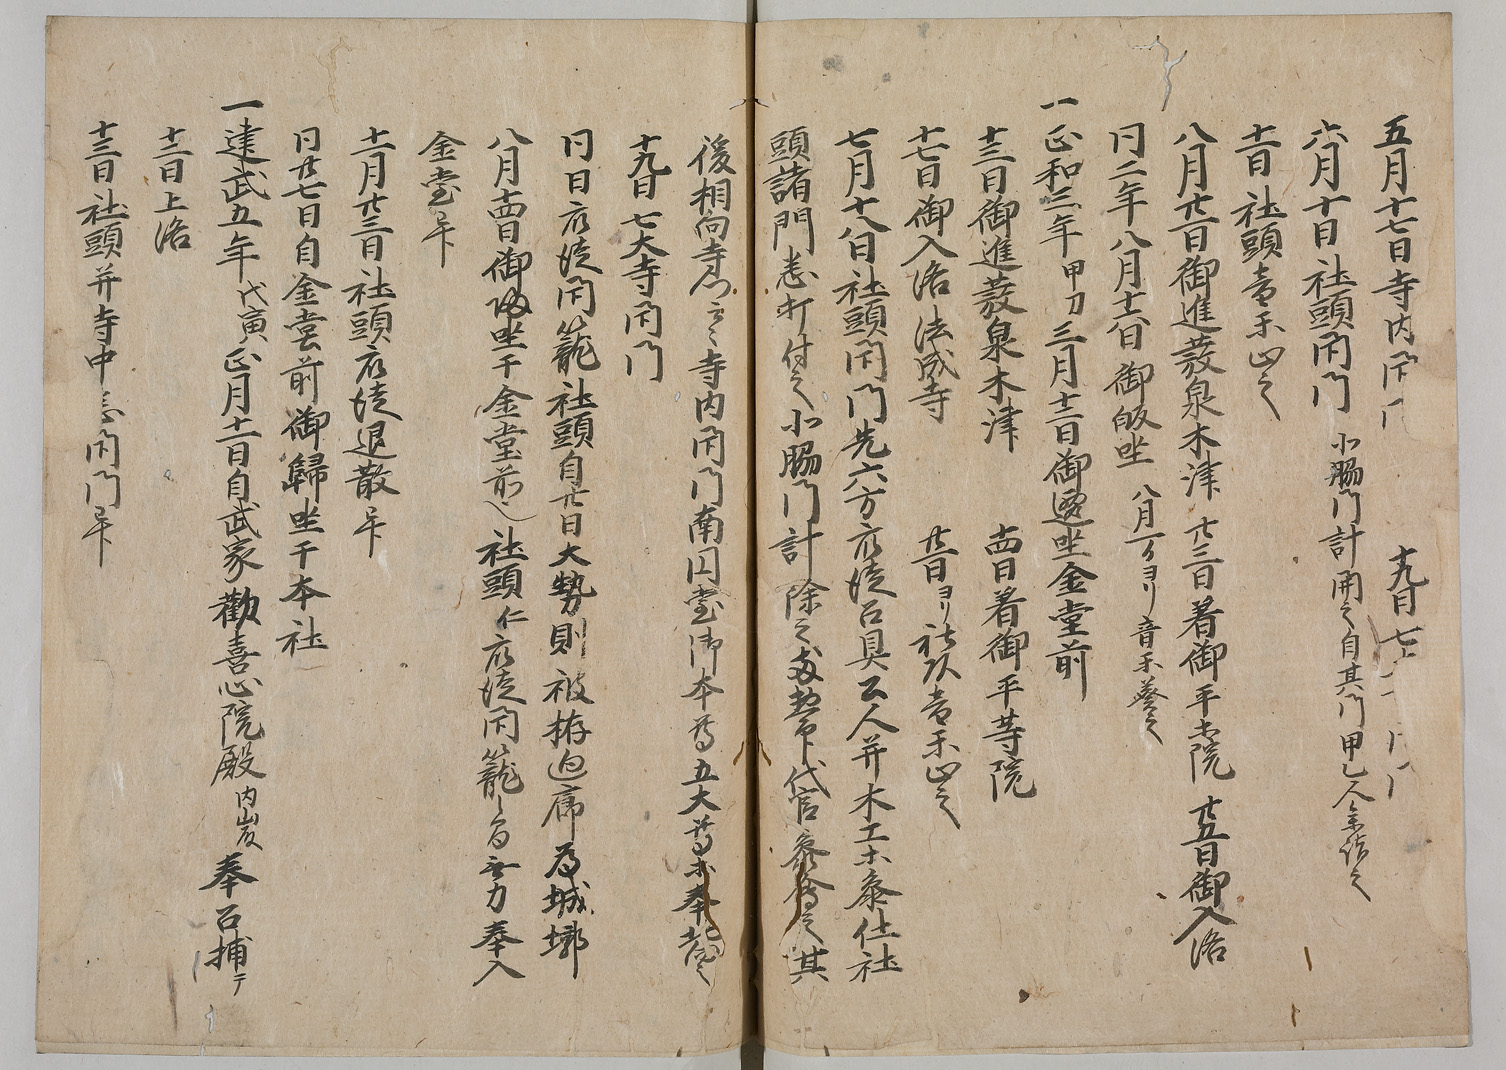 五月十七日寺内閇門　十九日七大寺閇門
六月十日社頭閇門　小脇門計開之自其門甲乙人参詣之
十一日社頭音楽止之
八月廿一日御進發泉木津　廿三日着御平等院　廿五日御入洛
同二年八月十六日御皈坐　八月一日ヨリ音楽奏之
一正和三年甲刀三月十二日御遷坐金堂前
十三日御進發泉木津　十四日着御平等院
十七日御入洛法成寺　廿一日ヨリ社頭音楽止之
七月十八日社頭閇門先六方衆徒召具公人并木工等参仕社
頭諸門悉打付之小脇門計除之　代官参　之其
後相向寺　云々寺内閇門南円堂御本尊五大尊等奉　之
十九日七大寺閇門
同日衆徒閇籠社頭自廿日大勢則被　迫席為城墎
八月十四日御帰坐于金堂前　社頭仁衆徒閇籠之間無力奉入
金堂畢
十二月廿三日社頭衆徒退散畢
同廿七日自金堂前御歸坐于本社
一建武五年戊寅正月十一日自武家勸喜心院殿内山殿奉召捕テ
十二日上洛
十三日社頭并寺中悉閇門畢